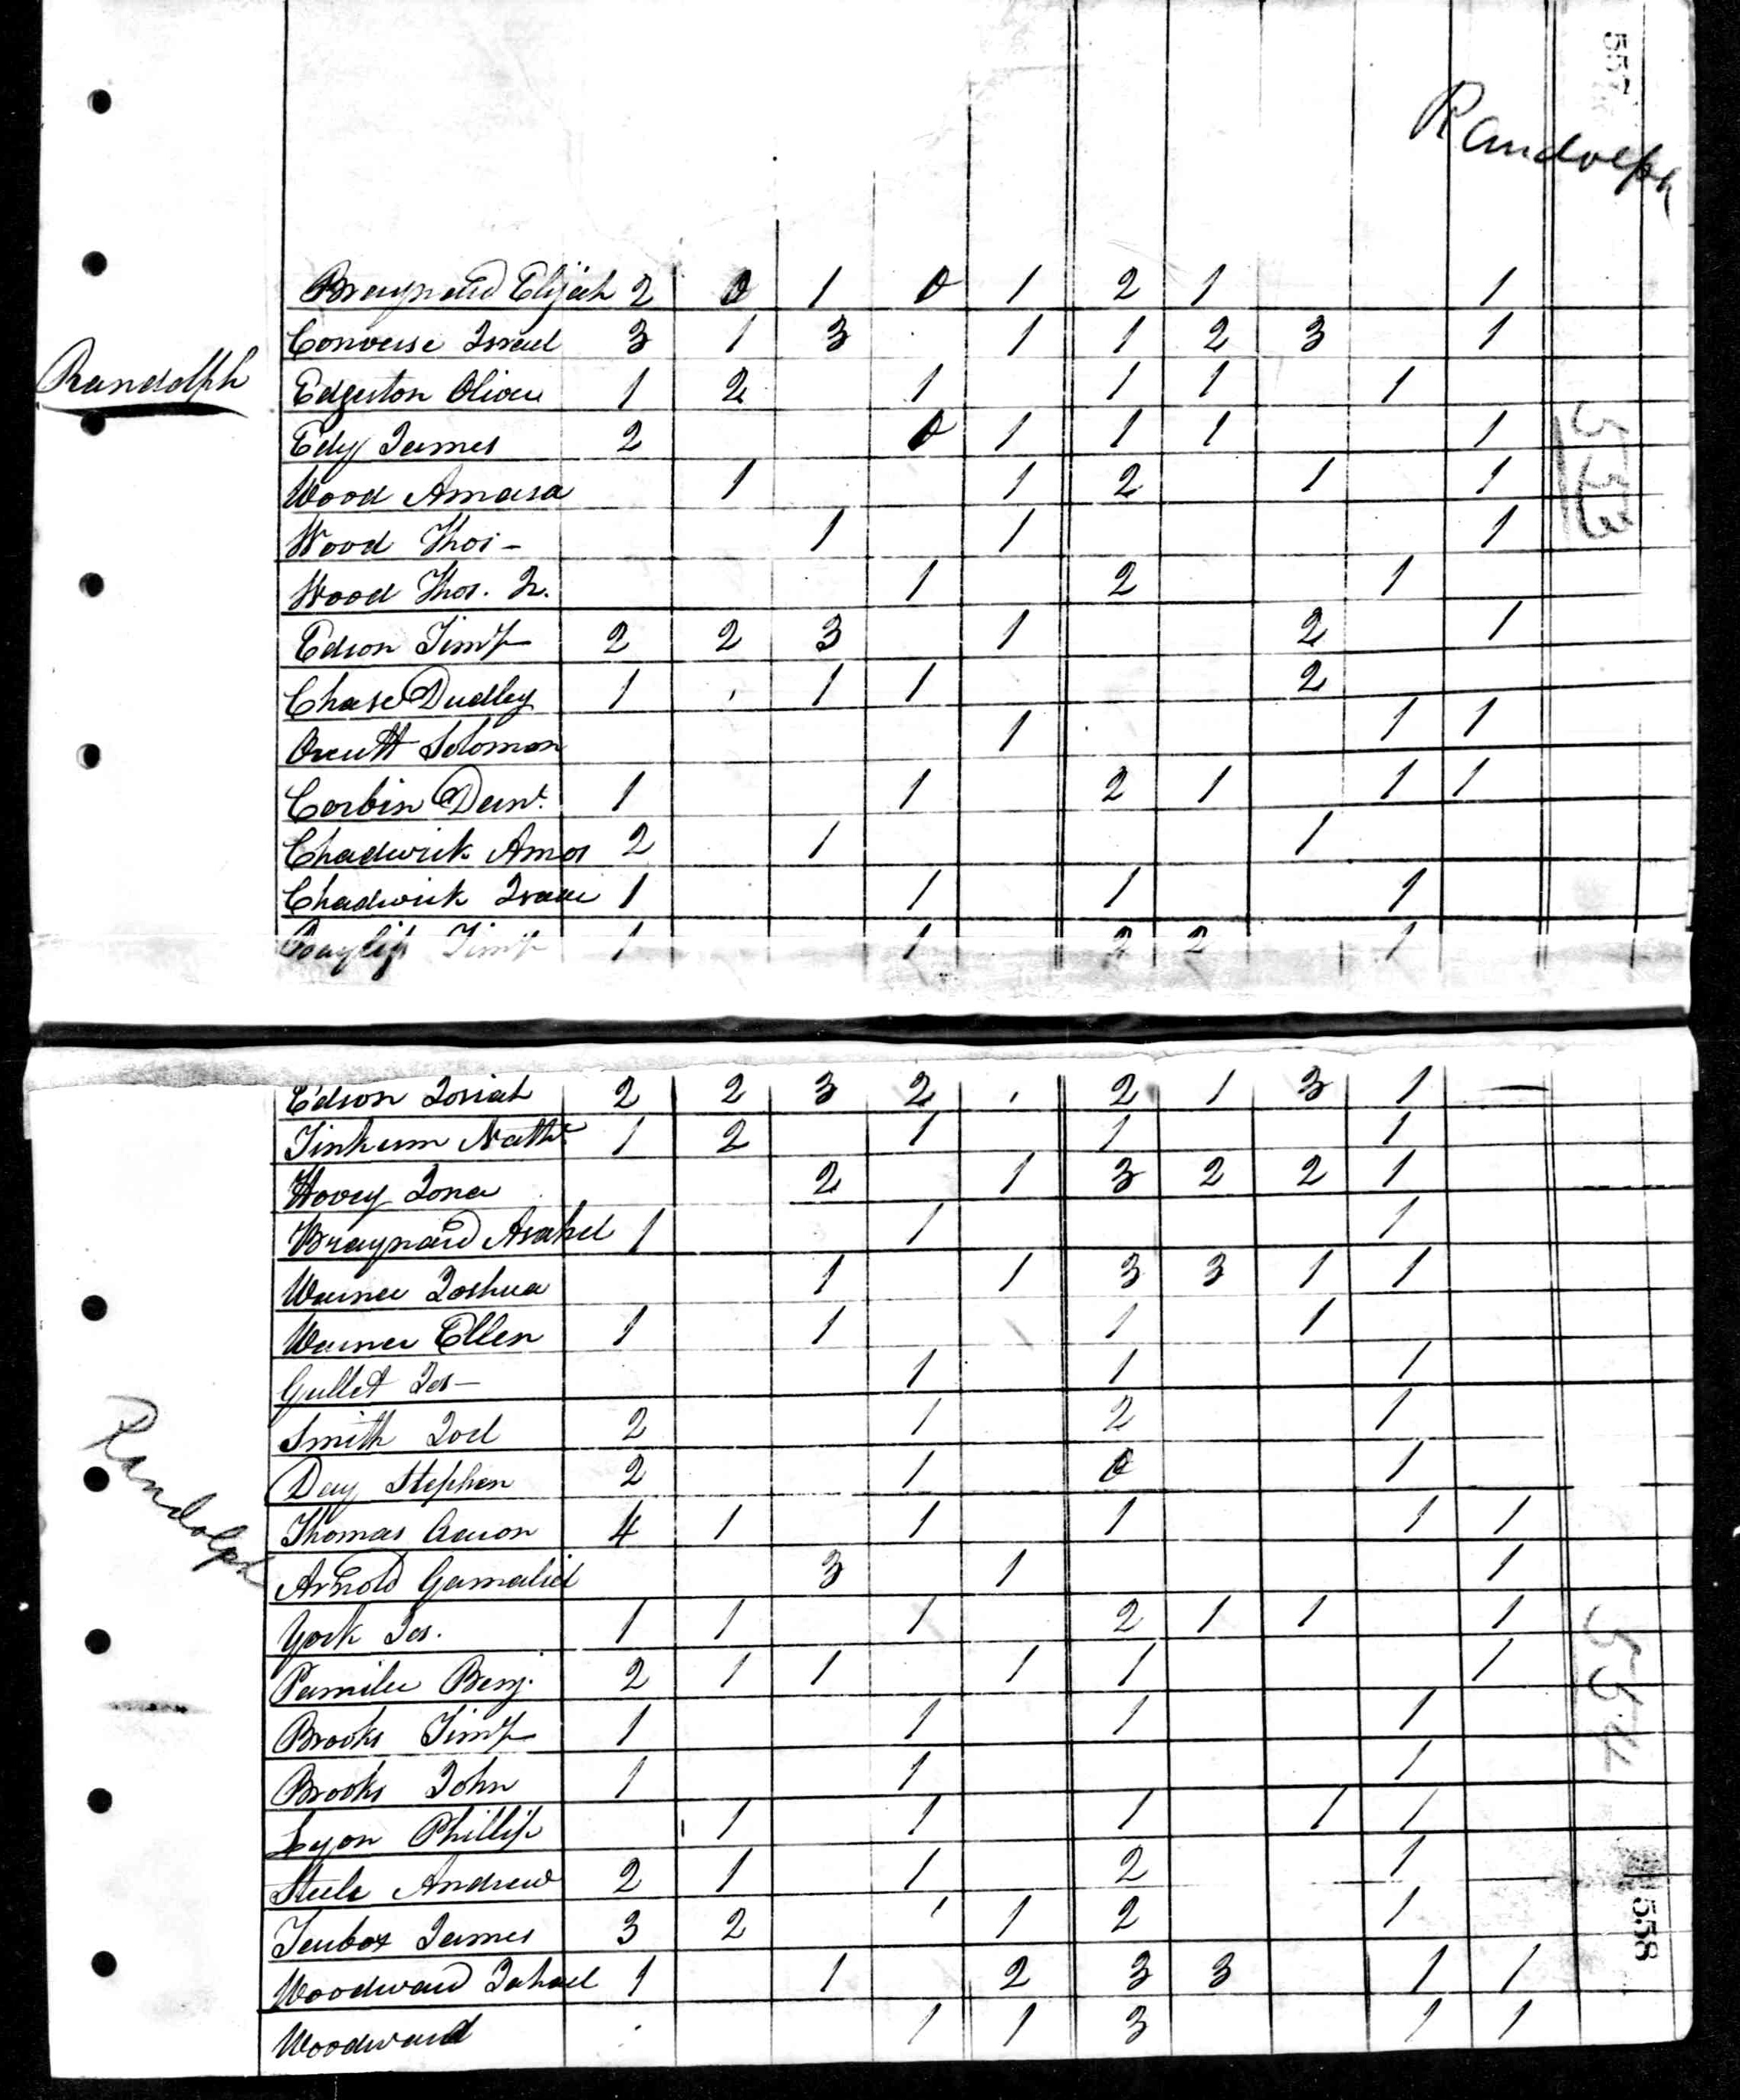 557
Randolph
Braynard Elijah 2 0 1 0 1 2 1 1
Converse Israel 3 1 3 1 1 2 3 1
Randolph
Edgerton Oliver 1 2 1 1 1 1
Edy James 2 0 1 1 1 1
Wood Amasa 1 1 2 1 1
533
Wood Thos - 1 1 1
Wood Thos. Jr. 1 2 1
Edson Timy 2 2 3 1 2 1
Chase Dudley 1 1 1 2
Orcutt Solomon 1 1 1
Corbin Danl. 1 1 2 1 1 1
Chadwick Amos 2 1 1
Chadwick Isaac 1 1 1 1
Timy 1 1 2 2 1
Edson Josiah 2 2 3 2 2 1 3 1 —
Tinkum Nathl 1 2 1 1 1
Hovey Jona 2 1 3 2 2 1
Braynard Asahel 1 1 1
Warner Joshua 1 1 3 3 1 1
Warner Ellen 1 1 1 1
Gullet Jos - 1 1 1
Smith Joel 2 1 2 1
Randolph
Day Stephen 2 1 0 1
Thomas Aaron 4 1 1 1 1 1
Arnold Gamaliel 3 1 1
York Jos. 1 1 1 2 1 1 1
554
Benj. 2 1 1 1 1 1
Brooks Timy 1 1 1 1
Brooks John 1 1 1
Lyon Phillip 1 1 1 1 1
Steele Andrew 2 1 1 2 1
558
James 3 2 1 1 2 1
Woodward 1 1 2 3 3 1 1
Woodward 1 1 3 1 1